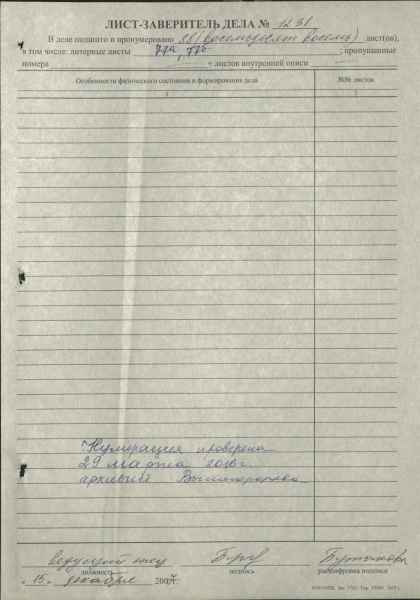 ЛИСТ-ЗАВЕРИТЕЛЬ ДЕЛА № 1251
В деле подшито и пронумеровано 88 (восемьдесят восемь) лист(ов),
в том числе: литерные листы 77а, 77б ; пропущенные
номера + листов внутренней описи
Особенности физического состояния и формирования дела №№ листов
1
Нумерация проверена
29 марта 2010г.
архивист
ведущий Бург
должность подпись расшифровка подписи
"15" декабря 2007